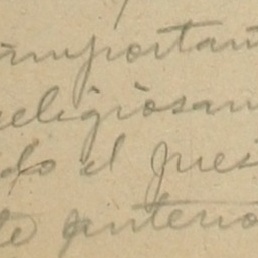 importan
religiosam
do el pres
te anterio